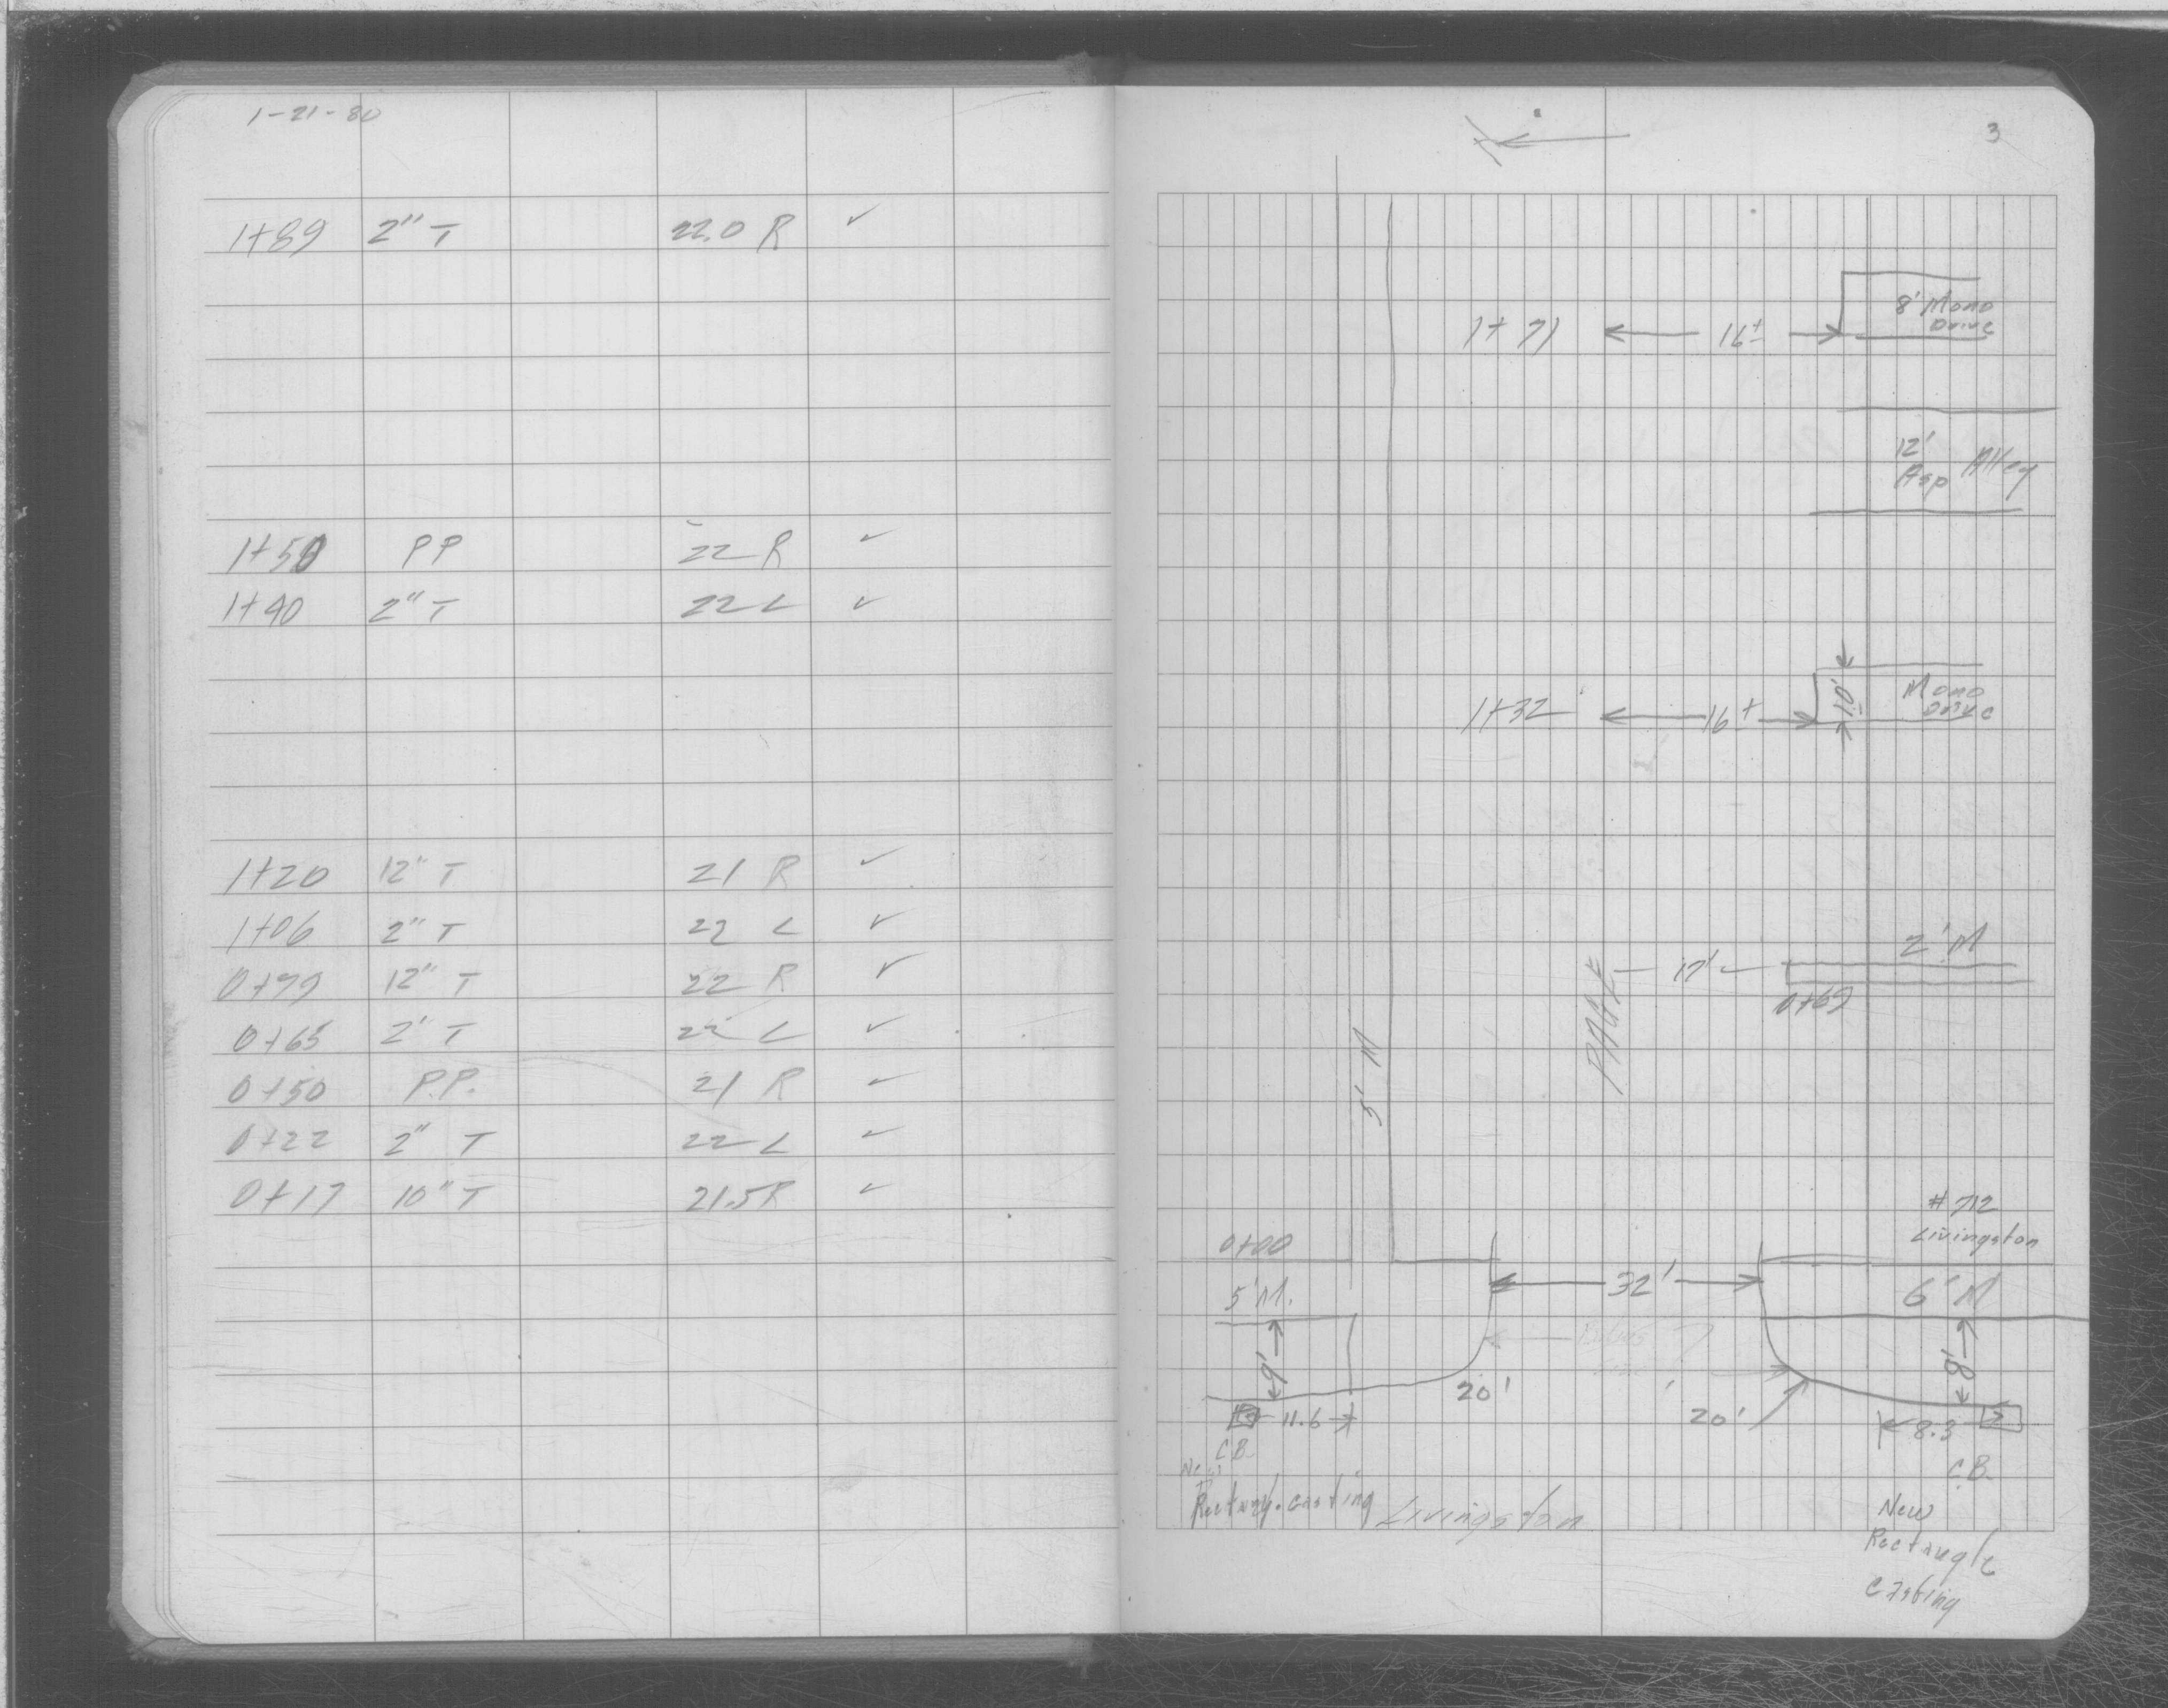 1-21-80
1+89 2" T 22.0 R ✓
1+50 PP 22 R ✓
1+40 2" T 22 L ✓
1+20 12" T 21 R ✓
1+06 2" T 22 L ✓
0+79 12" T 22 R ✓
0+65 2' T 22 L ✓
0+50 P.P. 21 R ✓
0+22 2" T 22 L ✓
0+17 10" T 21.5 R ✓
3
8' Mono
Drive
1+71 16±
12'
Asp Alley
1+32 16± 10' Mono
Drive
2' M
17'
0+69
5' M
#712
Livingston
0+00
32'
5' M.
6' M
9'
8'
20'
20'
11.6
8.3
C.B.
C.B.
New
Rectang. Casting
Livingston
New
Rectangle
Casting